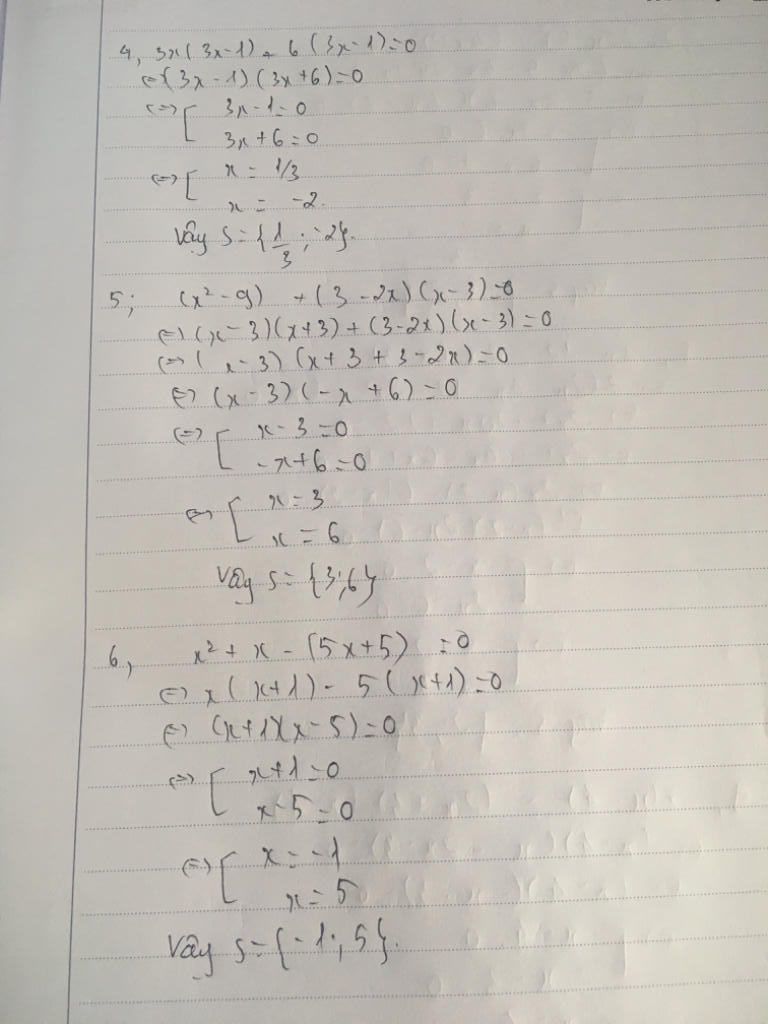 4, 3x(3x-1) + 6(3x-1)=0
⇔(3x-1)(3x+6)=0
⇔[ 3x-1=0
3x+6=0
⇔[ x = 1/3
x = -2.
Vây S={1/3; -2}.
5; (x²-9) + (3-2x)(x-3)=0
⇔(x-3)(x+3)+(3-2x)(x-3)=0
⇔(x-3)(x+3+3-2x)=0
⇔(x-3)(-x+6)=0
⇔[ x-3=0
-x+6=0
⇔[ x=3
x=6
Vây S={3;6}
6, x²+x-(5x+5) =0
⇔x(x+1)-5(x+1)=0
⇔(x+1)(x-5)=0
⇔[ x+1=0
x-5=0
⇔[ x=-1
x=5
Vây S={-1; 5}.